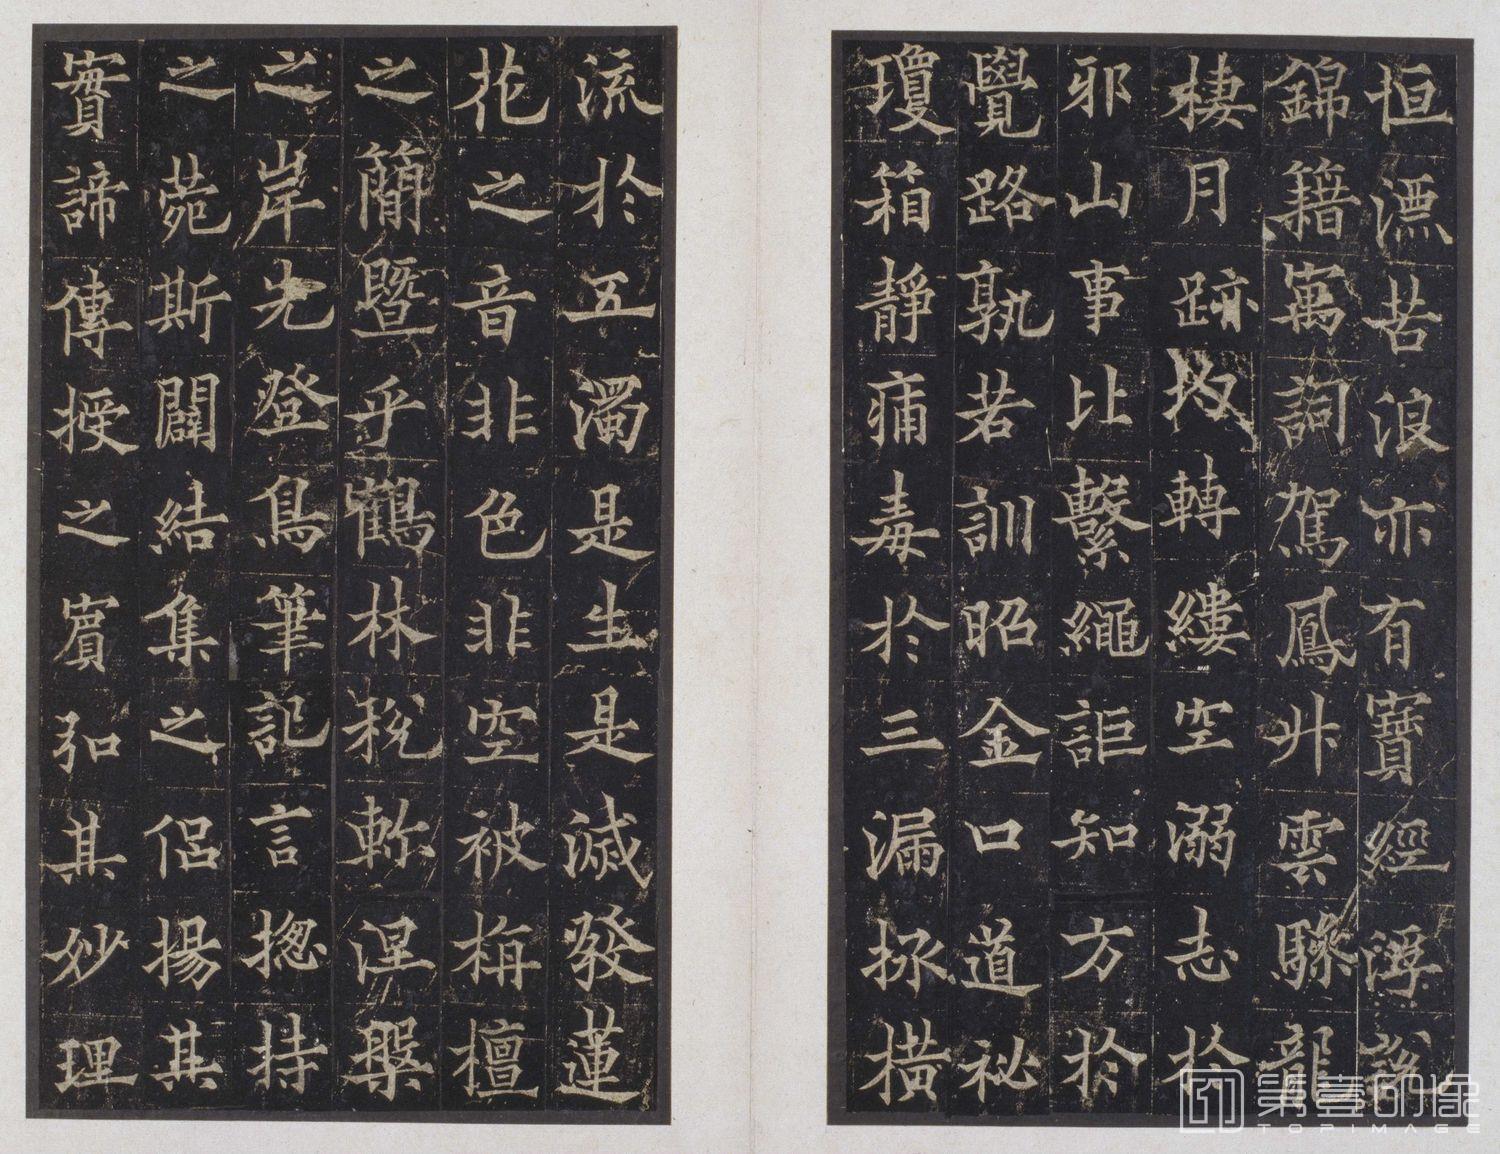 恒漂苦浪亦有寶經浮說
錦籍寓詞駕鳳升雲驂龍
棲月跡均轉縷空溺志於
邪山事比繫繩詎知方於
覺路孰若訓昭金口道祕
瓊箱靜痡毒於三漏拯橫
流於五濁是生是滅發蓮
花之音非色非空被栴檀
之簡暨乎鶴林稅軫涅槃
之岸先登鳥筆記言揔持
之菀斯闢結集之侶揚其
實諦傳授之賓弘其妙理
第壹印像
TOPIMAGE